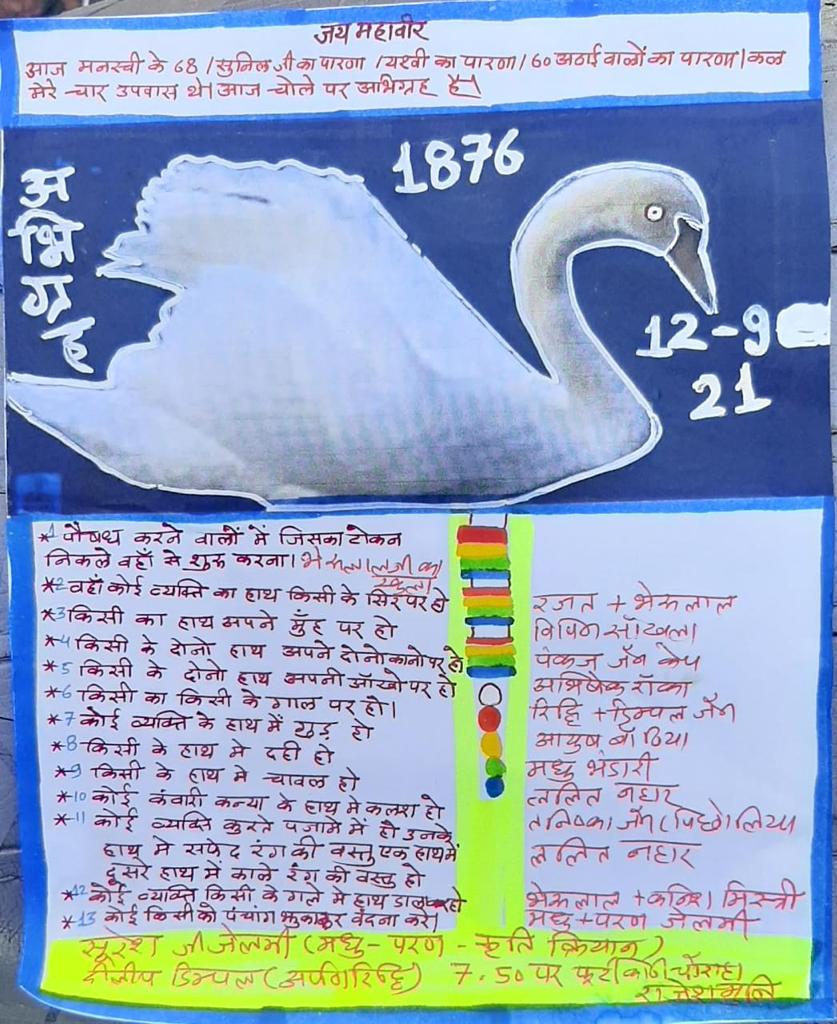 जय महावीर
आज मनस्वी के 68 / सुनिल जी का पारणा / यश्वी का पारणा / 60 अठाई वालों का पारणा। कल
मेरे चार उपवास थे। आज चोले पर अभिग्रह है।
अभिग्रह
1876
12-9
21
*1 पौषध करने वालों में जिसका टोकन
निकले वहाँ से शुरू करना। भेरूलालजी का
*2 वहाँ कोई व्यक्ति का हाथ किसी के सिर पर हो
*3 किसी का हाथ अपने मुँह पर हो
*4 किसी के दोनो हाथ अपने दोनो कानो पर हो
*5 किसी के दोनो हाथ अपनी आँखो पर हो
*6 किसी का किसी के गाल पर हो।
*7 कोई व्यक्ति के हाथ में गुड़ हो
*8 किसी के हाथ मे दही हो
*9 किसी के हाथ मे चावल हो
*10 कोई कंवारी कन्या के हाथ में कलश हो
*11 कोई व्यक्ति कुरते पजामे में हो उनके
हाथ मे सफेद रंग की वस्तु एक हाथ में
दूसरे हाथ में काले रंग की वस्तु हो
*12 कोई व्यक्ति किसी के गले मे हाथ डाल रहो
*13 कोई किसी को पंचांग झुकाकर वंदना करे।
रजत + भेरूलाल
विपिन साँखला
पंकज जैन
अभिषेक राँका
रिद्दि + डिम्पल जैन
आयुष बाँठिया
मधु भंडारी
ललित नहार
तनिष्का जैन (पिछोलिया
ललित नहार
भेरूलाल + मिस्त्री
मधु + परण जेलमी
सुरेश जी जेलमी (मधु - परण - कृति क्रियान)
दीलीप डिम्पल 7.50 पर चौराहा
राजेश मुनि